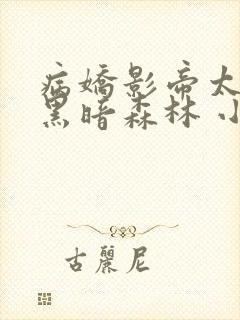 病嬌影帝太
黑暗森林 小
古麗尼